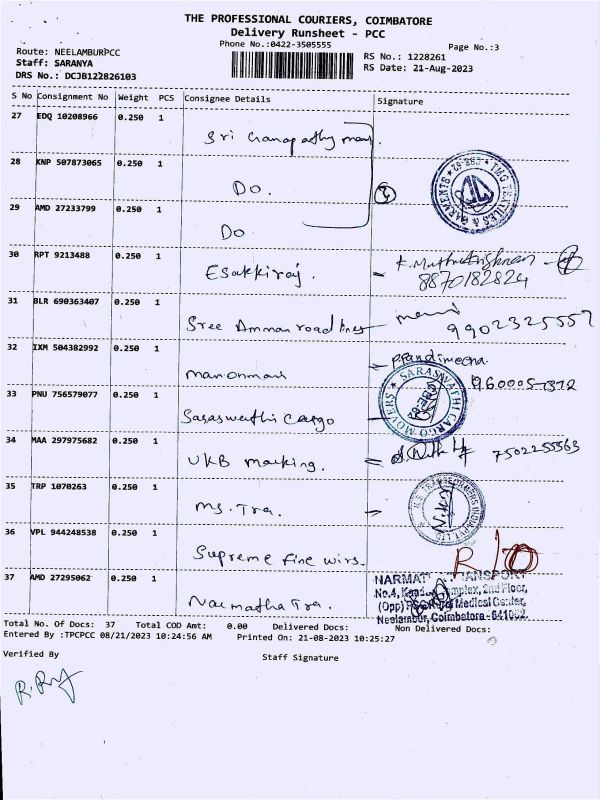 THE PROFESSIONAL COURIERS, COIMBATORE
Delivery Runsheet - PCC
Phone No.:0422-3505555
Page No.:3
Route: NEELAMBURPCC
Staff: SARANYA
DRS No.: DCJB122826103
RS No.: 1228261
RS Date: 21-Aug-2023
S No Consignment No Weight PCS Consignee Details Signature
27 EDQ 10208966 0.250 1
Sri Ganapathy
28 KNP 507873065 0.250 1
Do.
29 AMD 27233799 0.250 1
Do
TMG TEXTILES & GARMENTS * CBE-62 *
30 RPT 9213488 0.250 1
Esakkiraj. K. Muthukrishnan
8870182824
31 BLR 690363407 0.250 1
Sree Amman road lines 9902325557
32 IXM 504382992 0.250 1
Manonmani
9600051312
33 PNU 756579077 0.250 1
Saraswathi Cargo
SARASWATHI CARGO MOVERS
34 MAA 297975682 0.250 1
UKB marking. 7502255563
35 TRP 1070263 0.250 1
Ms. Tra.
36 VPL 944248538 0.250 1
Supreme fine wirs.
37 AMD 27295062 0.250 1
Narmatha Tra.
(Opp) Medical Center,
Neelambur, Coimbatore - 641062.
Total No. Of Docs: 37 Total COD Amt: 0.00 Delivered Docs: Non Delivered Docs:
Entered By :TPCPCC 08/21/2023 10:24:56 AM Printed On: 21-08-2023 10:25:27
Verified By Staff Signature